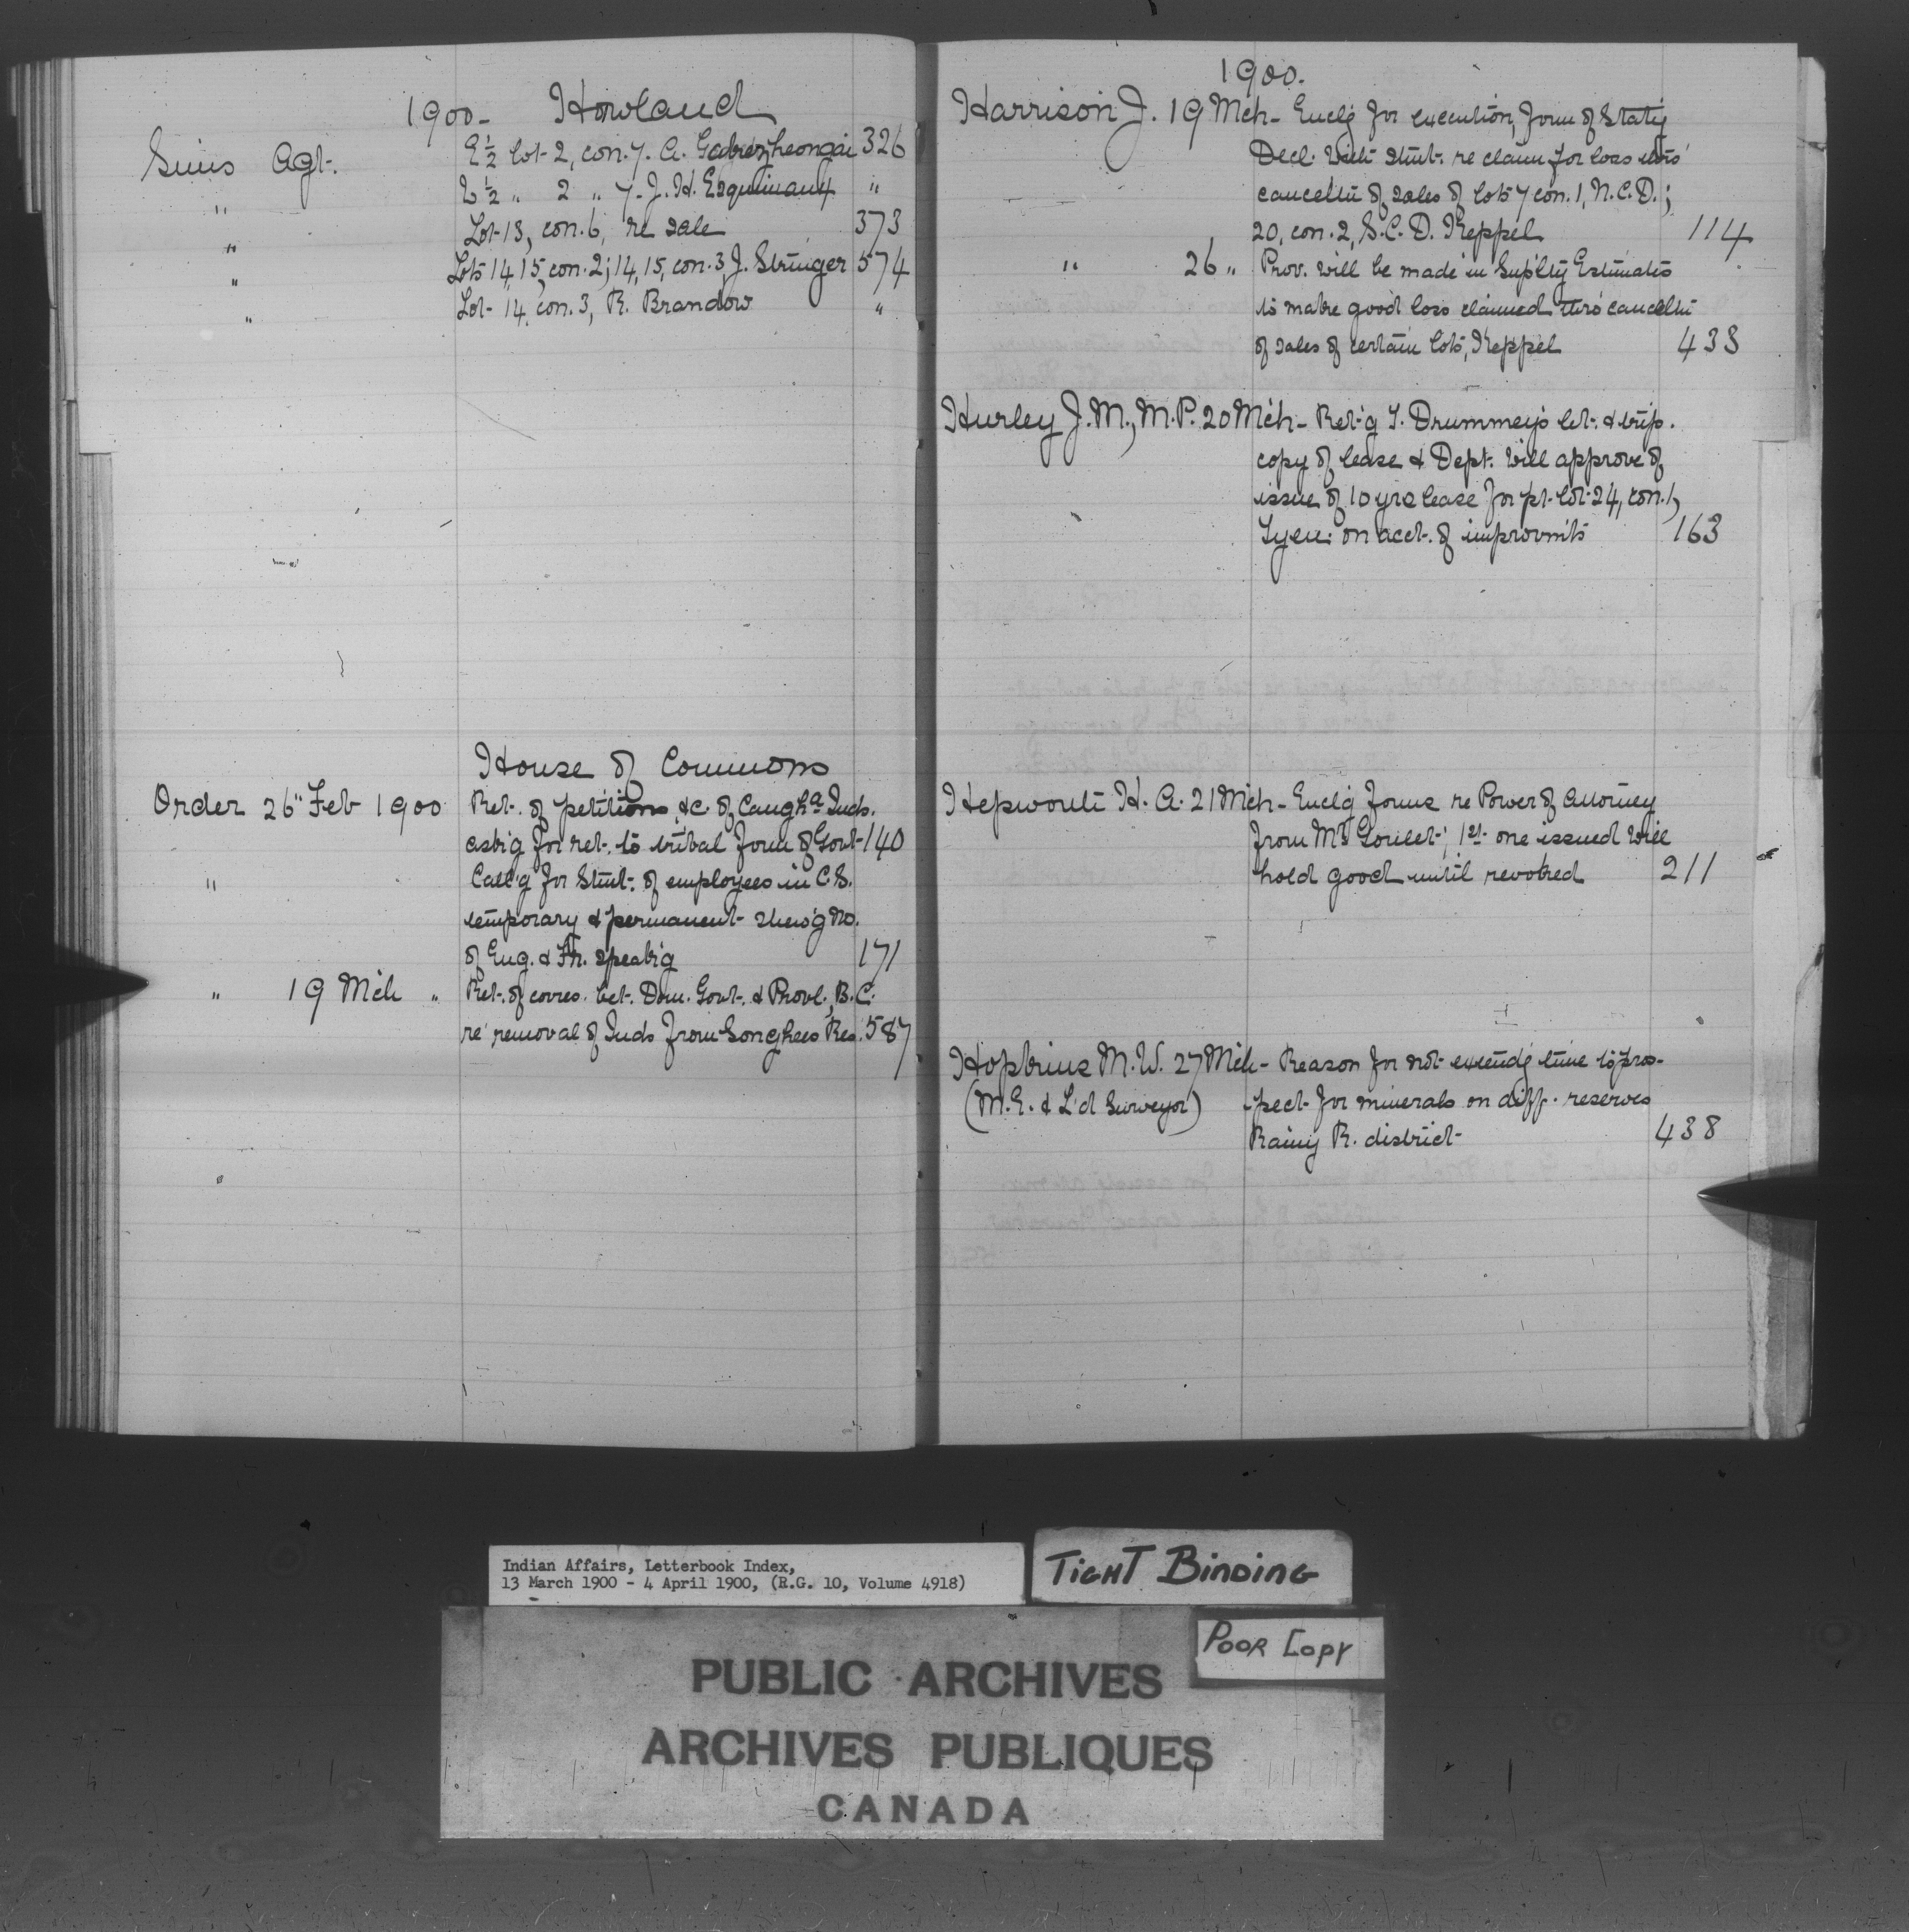 1900- Howland
Sims Agt. E½ lot 2, con. 7. A. 326
" W½ " 2 " 7. J. H. Esquimaux "
" Lot 13, con. 6, re sale 373
" Lots 14, 15, con. 2; 14, 15, con. 3, J. Stringer 574
" Lot 14, con. 3, R. Brandow "
House of Commons
Order 26" Feb 1900 Ret. of petitions, &c. of Caughᵃ Inds.
ask'g for ret. to tribal form of Govt 140
" Call'g for Stmt. of employees in C.S.
temporary & permanent shew'g no.
of Eng. & Fr. speak'g 171
" 19 Mch " Ret. of corres. bet. Dom. Govt. & Provl., B.C.
re removal of Inds from Songhees Res. 587
1900.
Harrison J. 19 Mch - Encl'g for execution, form of Stat'y
Decl. with stmt. re claim for loss thro'
cancellth of sales of lots 7 con. 1, N.C.D.;
20, con. 2, S.C.D. Keppel 114
" 26 " Prov. will be made in Sup'lty Estimates
to make good loss claimed thro' cancellth
of sales of certain lots, Keppel 433
Hurley J. M., M.P. 20 Mch - Ret'g T. Drummey's let. & trip.
copy of lease & Dept. will approve of
issue of 10 yrs lease for pt. lot 24, con. 1,
Tyen: on acct. of improvmts 163
Hepworth H. A. 21 Mch - Encl'g forms re Power of Attorney
from Mrs Goulet; 1st one issued will
hold good until revoked 211
Hopkins M. W. 27 Mch - Reason for not extend'g time to pros-
(M.E. & L'd Surveyor) -pect for minerals on diff. reserves
Rainy R. district 438
Indian Affairs, Letterbook Index,
13 March 1900 - 4 April 1900, (R.G. 10, Volume 4918)
TIGHT BINDING
POOR COPY
PUBLIC ARCHIVES
ARCHIVES PUBLIQUES
CANADA